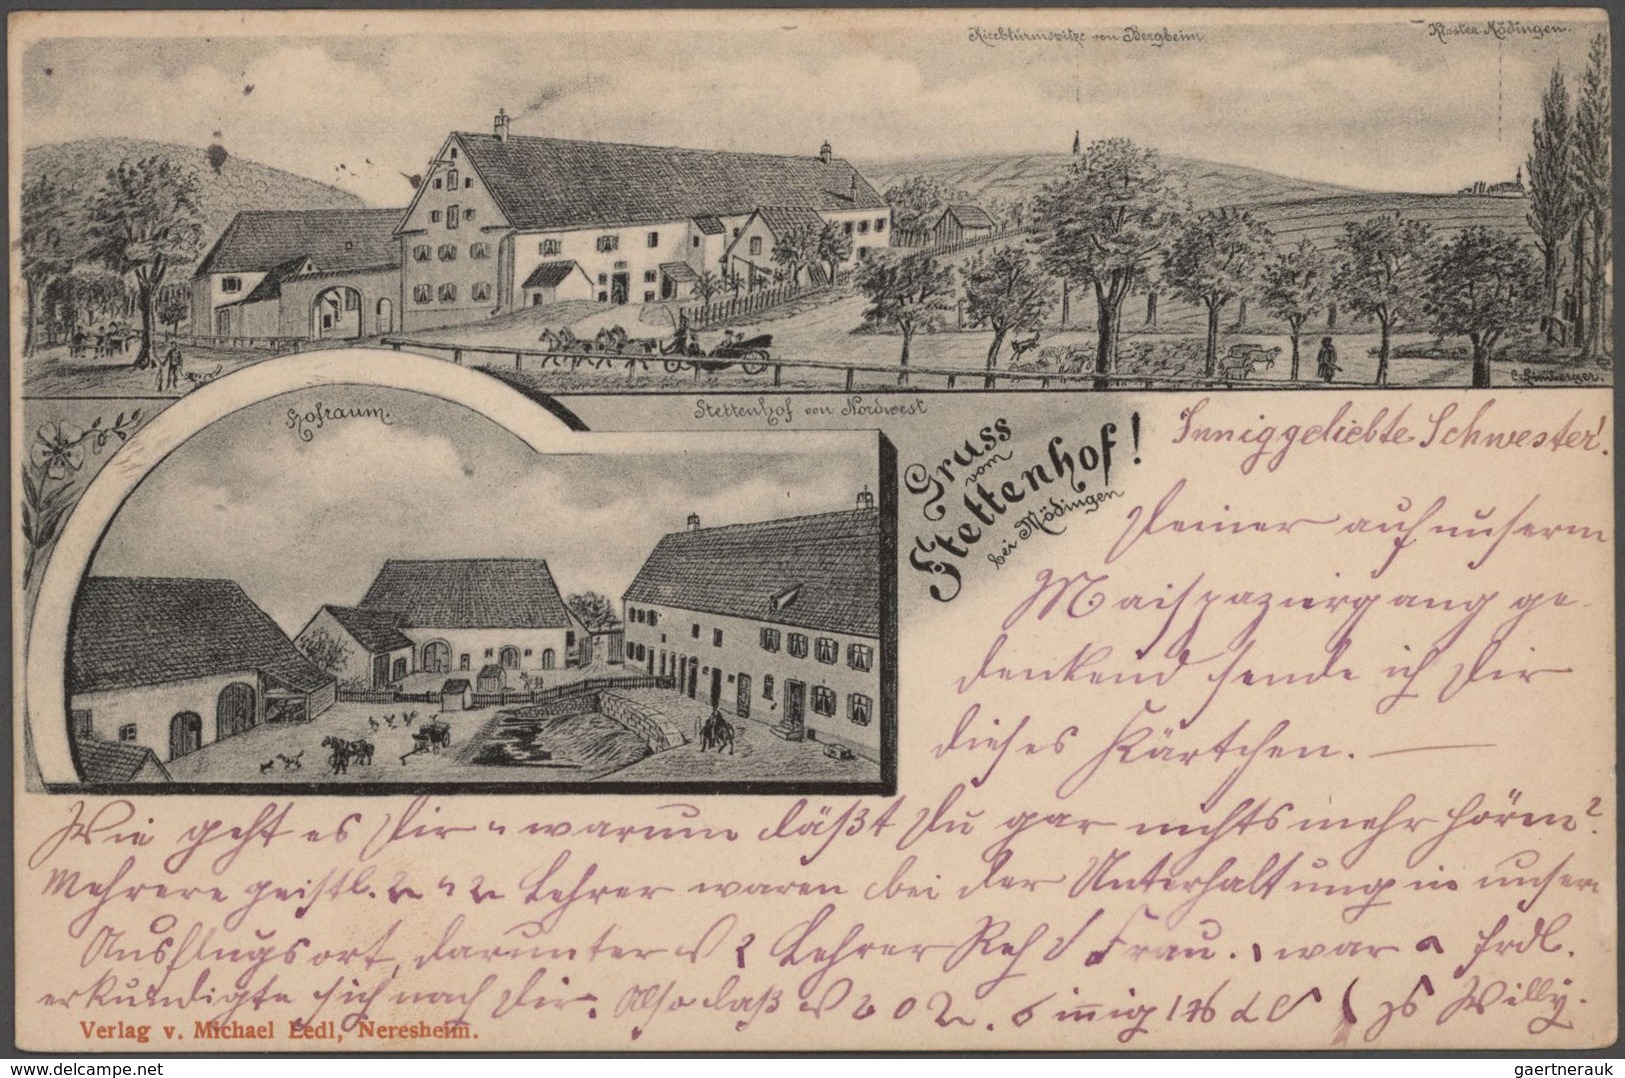 Kirchturmspitze von Bergheim
Kloster Mödingen.
C. Limberger.
Hofraum.
Stettenhof von Nordwest
Gruss
vom
Stettenhof!
bei Mödingen
Inniggeliebte Schwester!
Deiner auf unserm
Maispaziergang ge-
denkend sende ich Dir
dieses Kärtchen. —
Wie geht es Dir u warum läßst Du gar nichts mehr hören?
Mehrere geistl. Lehrer waren bei der Unterhaltung in unserm
Ausflugsort, darunter Lehrer Reh Frau. war frdl.
erkundigte sich nach Dir. Also daß innig Willy.
Verlag v. Michael Ledl, Neresheim.
gaertnerauk